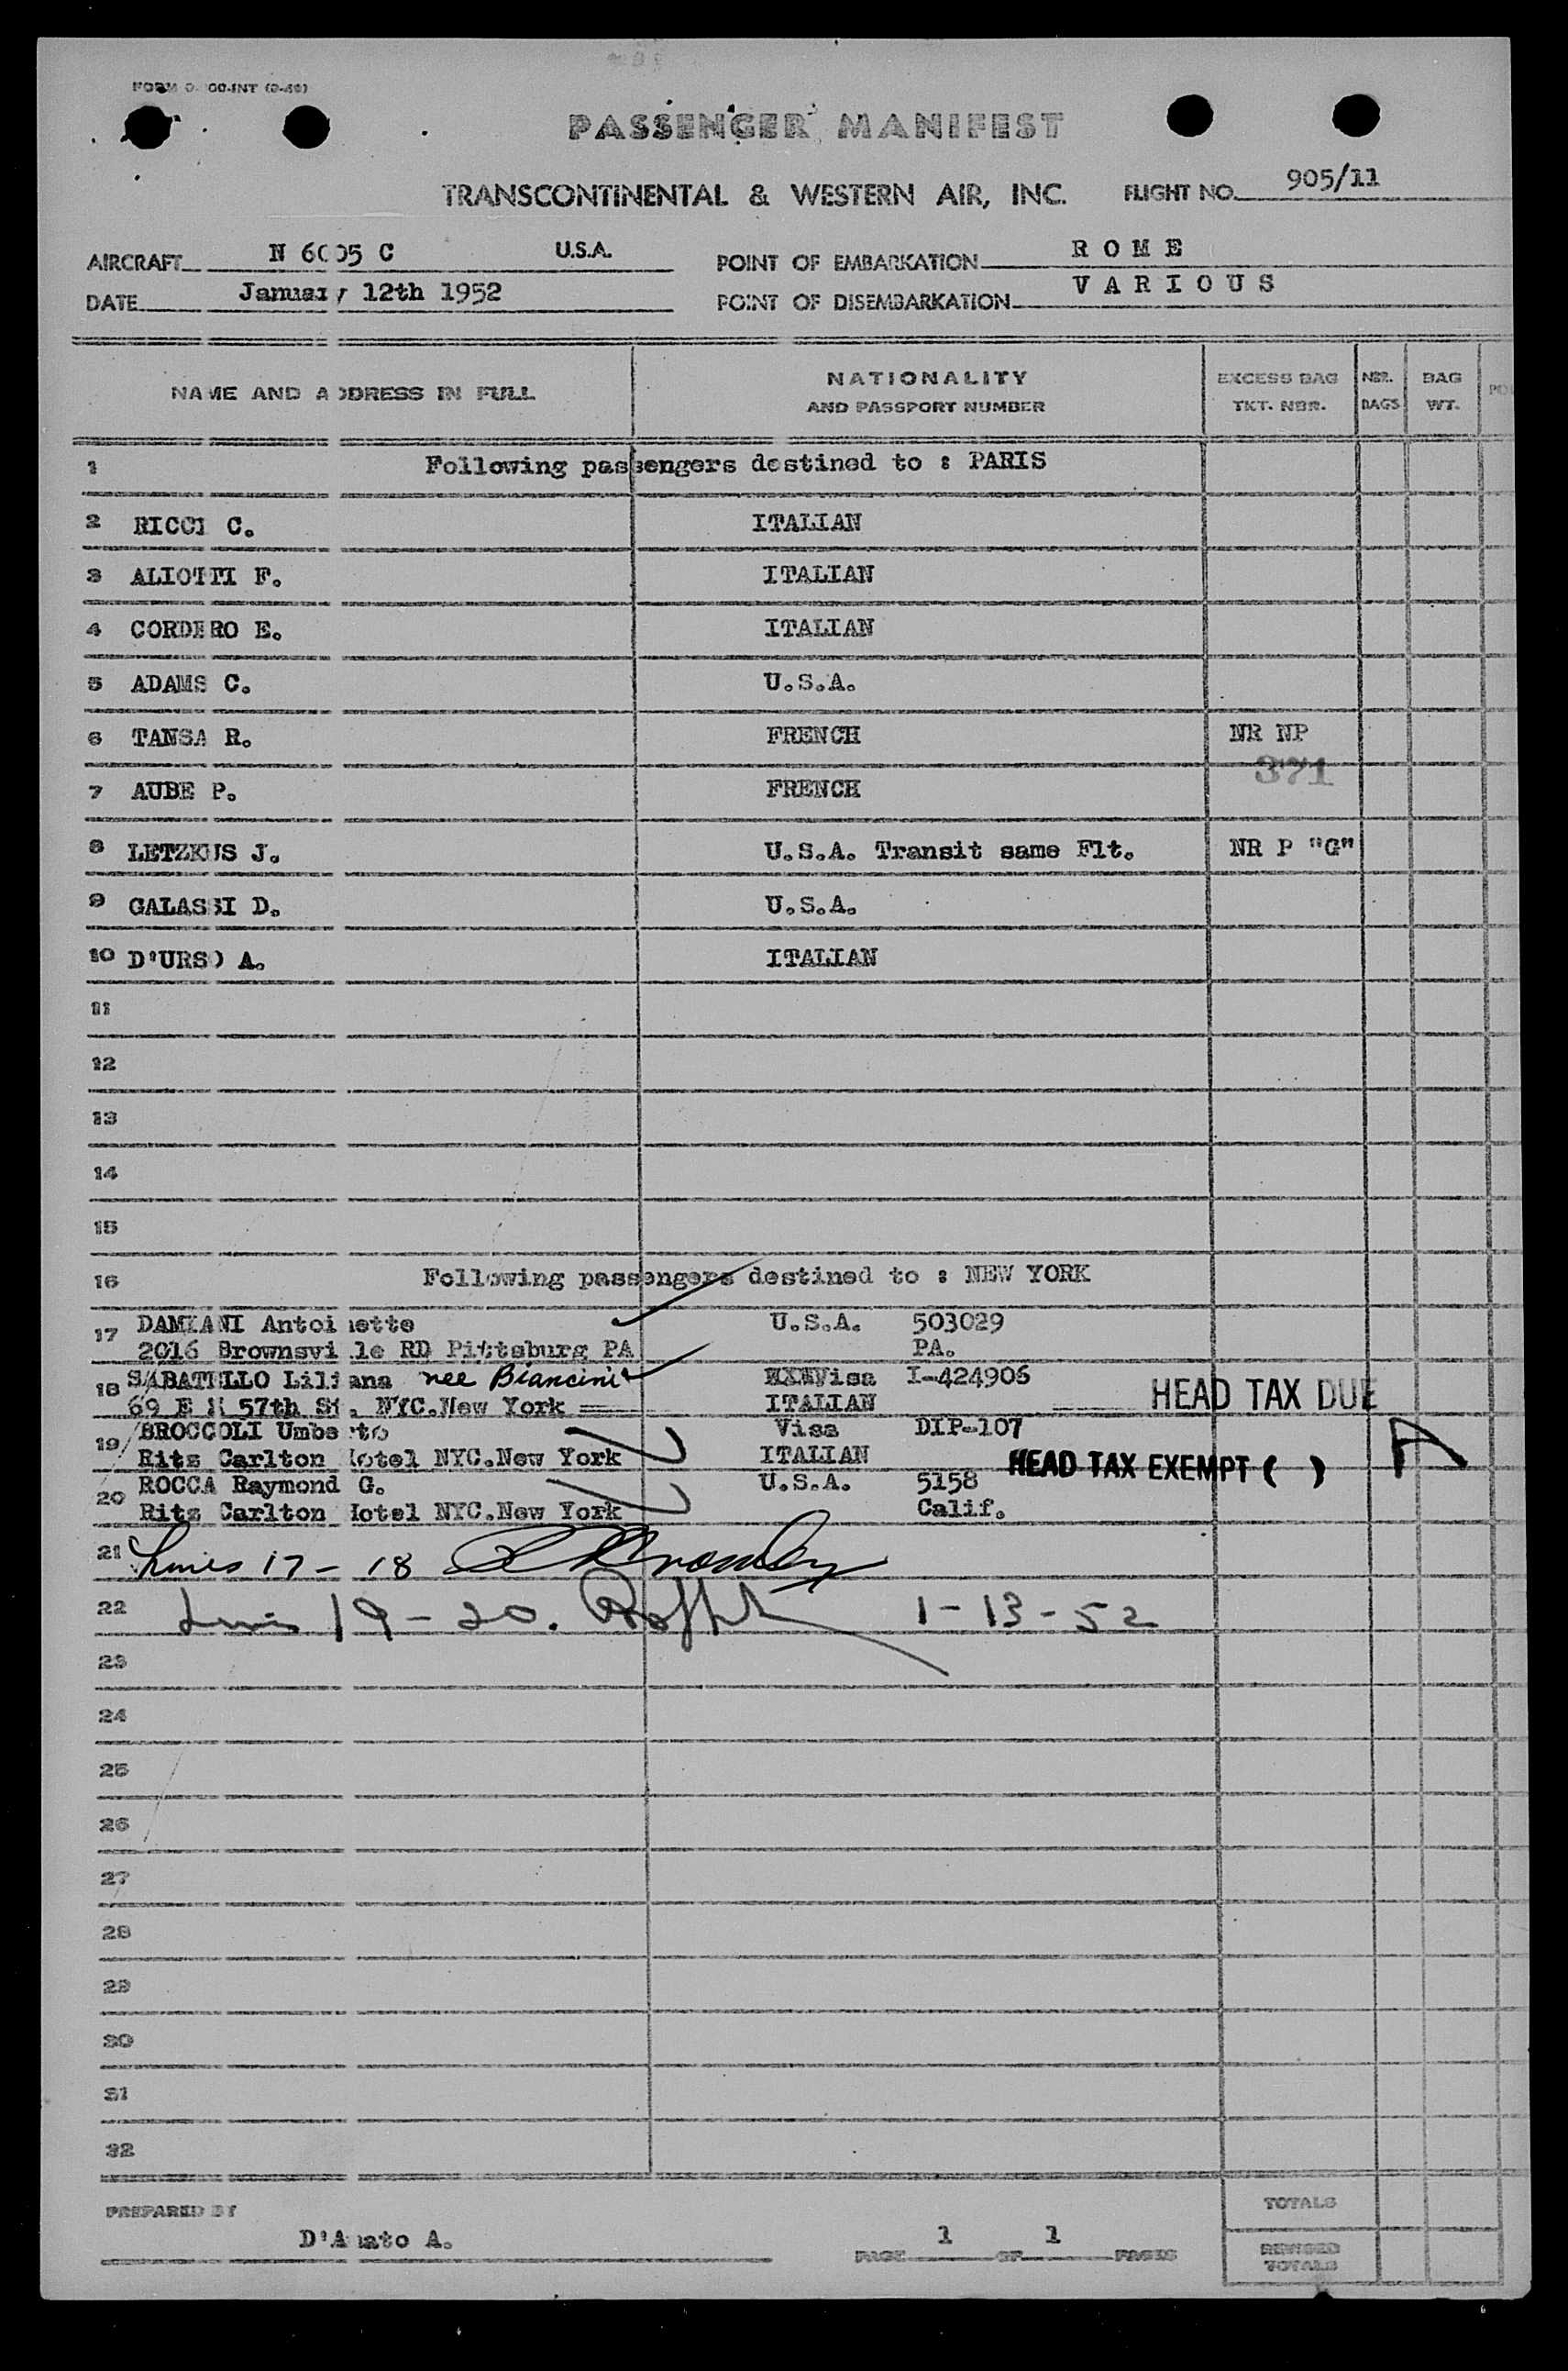 PASSENGER MANIFEST
TRANSCONTINENTAL & WESTERN AIR, INC. FLIGHT NO. 905/11
AIRCRAFT N 6005 C U.S.A. POINT OF EMBARKATION ROME
DATE January 12th 1952 POINT OF DISEMBARKATION VARIOUS
NAME AND ADDRESS IN FULL NATIONALITY AND PASSPORT NUMBER EXCESS BAG TKT. NBR. NBR. BAGS BAG WT.
1 Following passengers destined to : PARIS
2 RICCI C. ITALIAN
3 ALIOTTI F. ITALIAN
4 CORDERO E. ITALIAN
5 ADAMS C. U.S.A.
6 TANSA R. FRENCH NR NP
371
7 AUBE P. FRENCH
8 LETZKUS J. U.S.A. Transit same Flt. NR P "G"
9 GALASSI D. U.S.A.
10 D'URSO A. ITALIAN
11
12
13
14
15
16 Following passengers destined to : NEW YORK
17 DAMIANI Antoinette U.S.A. 503029
2016 Brownsville RD Pittsburg PA PA.
18 SABATELLO Liliana nee Biancini Visa I-424906
69 E 57th St. NYC.New York ITALIAN HEAD TAX DUE
19 BROCCOLI Umberto Visa DIP-107
Ritz Carlton Hotel NYC.New York ITALIAN HEAD TAX EXEMPT ( ) A
20 ROCCA Raymond G. U.S.A. 5158
Ritz Carlton Hotel NYC.New York Calif.
21 Lines 17 - 18
22 Lines 19 - 20. 1-13-52
23
24
25
26
27
28
29
30
31
32
PREPARED BY D'Amato A. PAGE 1 OF 1 PAGES
TOTALS
REVISED TOTALS